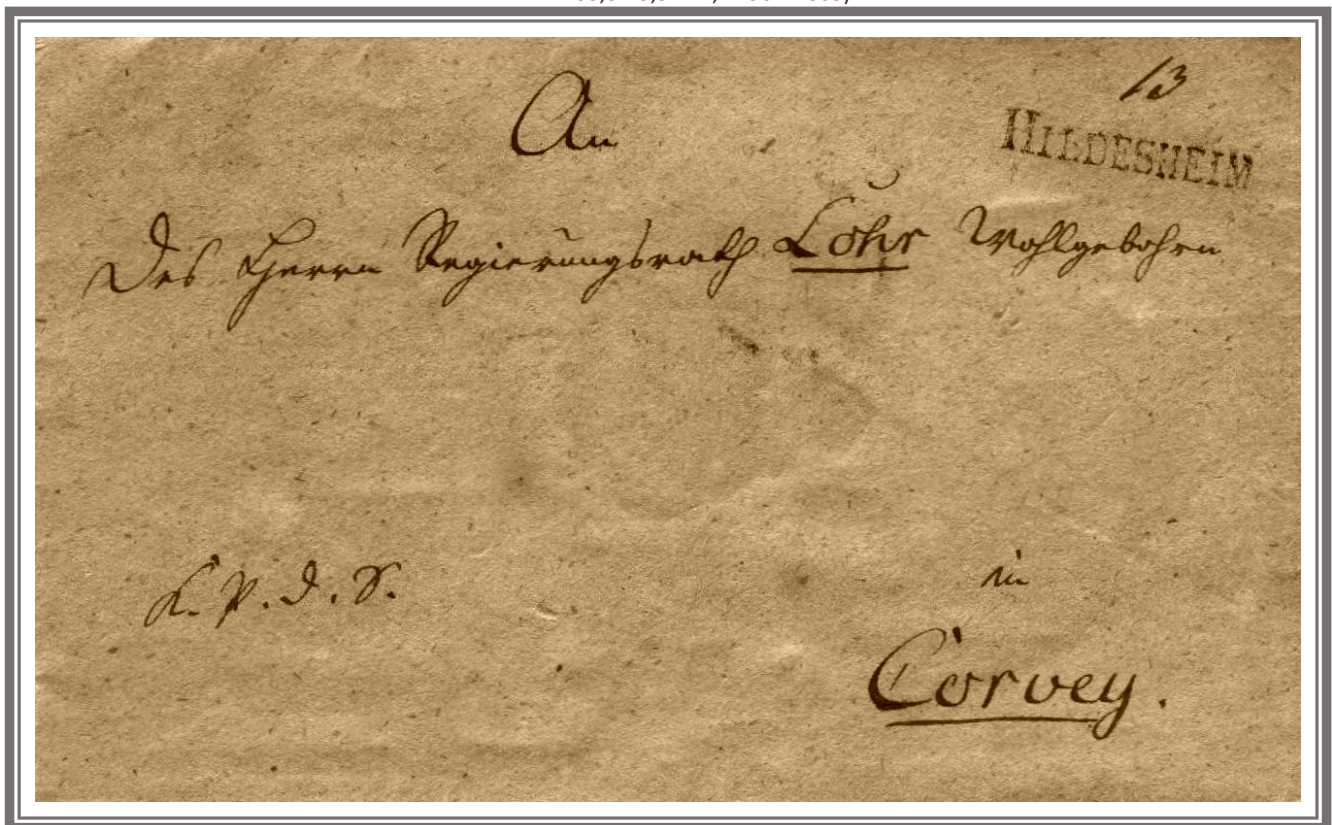 13
An
HILDESHEIM
Des Herrn Regierungsrath Löhr Wohlgebohrn
in
Corvey.